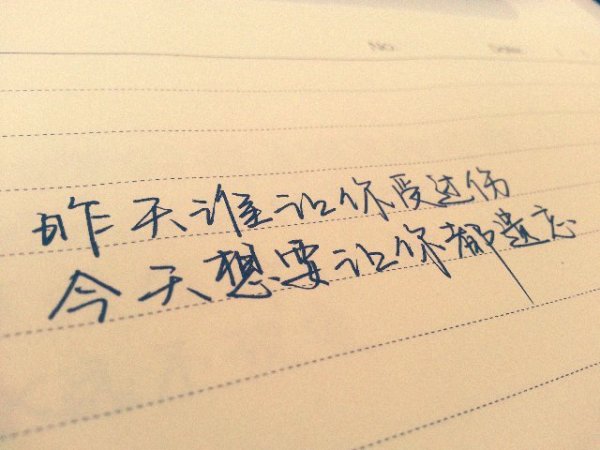 No.
Date
昨天谁让你受过伤
今天想要让你都遗忘